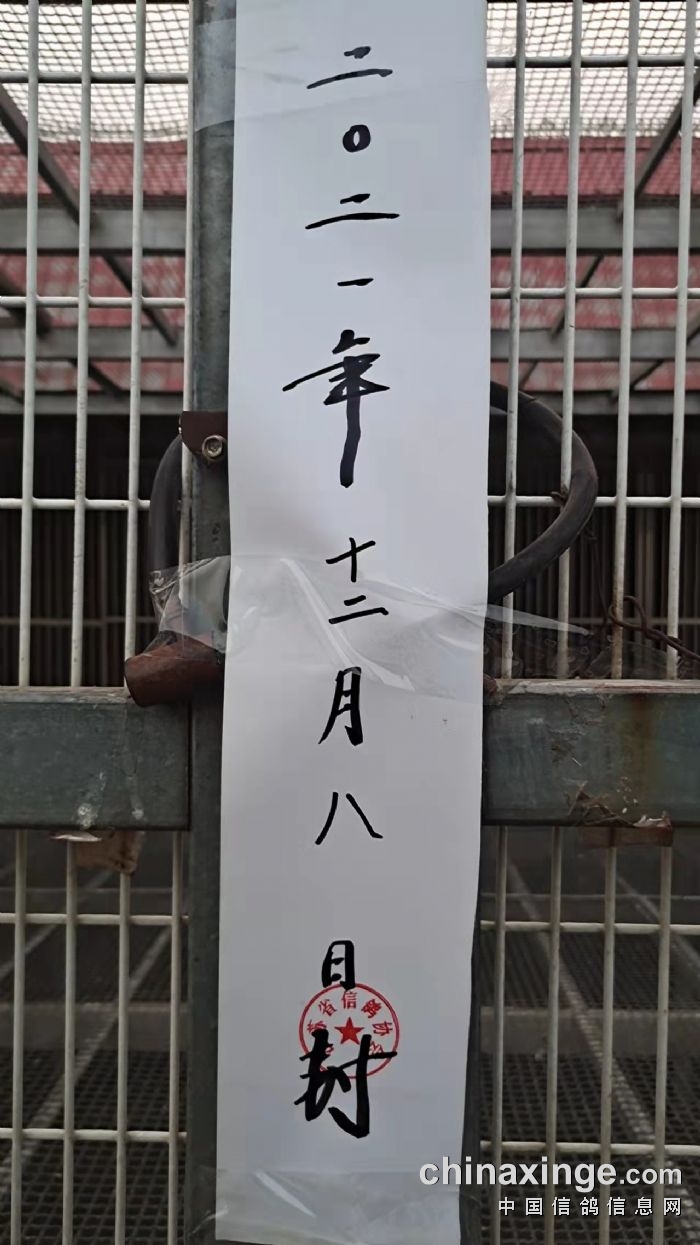 二0二一年十二月八日封
省信鸽协
chinaxinge.com
中国信鸽信息网